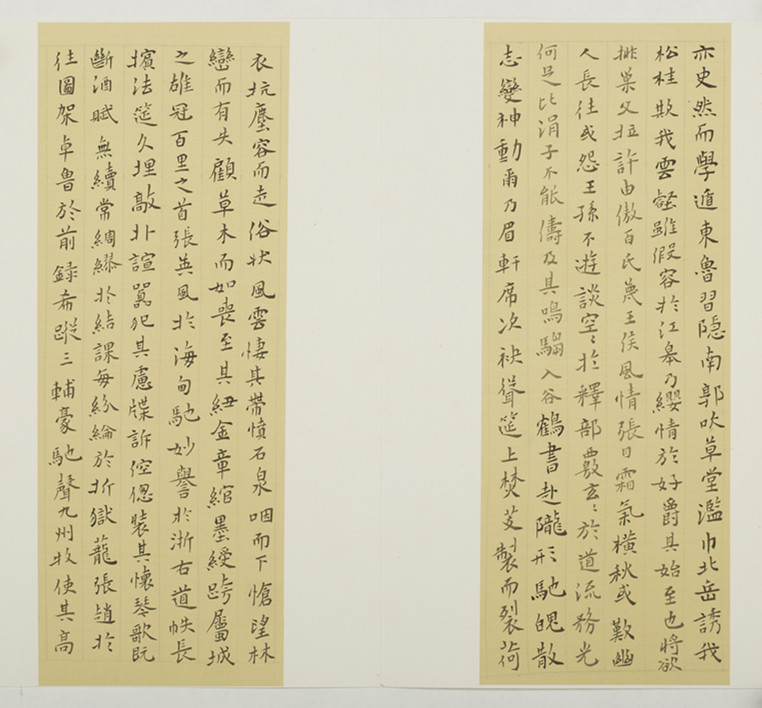 亦史然而學遁東魯習隐南郭吹草堂濫巾北岳誘我
松桂欺我雲壑雖假容於江皋乃纓情於好爵其始至也將欲
排巢父拉許由傲百氏蔑王侯風情張日霜氣橫秋或歎幽
人長往或怨王孫不遊談空〻於釋部覈玄〻於道流務光
何足比涓子不能儔及其鳴騶入谷鶴書赴隴形馳魄散
志變神動爾乃眉軒席次袂聳筵上焚芰製而裂荷
衣抗塵容而走俗狀風雲悽其帶憤石泉咽而下愴望林
巒而有失顧草木而如喪至其紐金章綰墨綬跨屬城
之雄冠百里之首張英風於海甸馳妙譽於浙右道帙長
擯法筵久埋敲扑諠囂犯其慮牒訴倥偬裝其懷琴歌既
斷酒賦無續常綢繆於結課每紛綸於折獄蘢張趙於
往圖架卓魯於前録希蹤三輔豪馳聲九州牧使其高